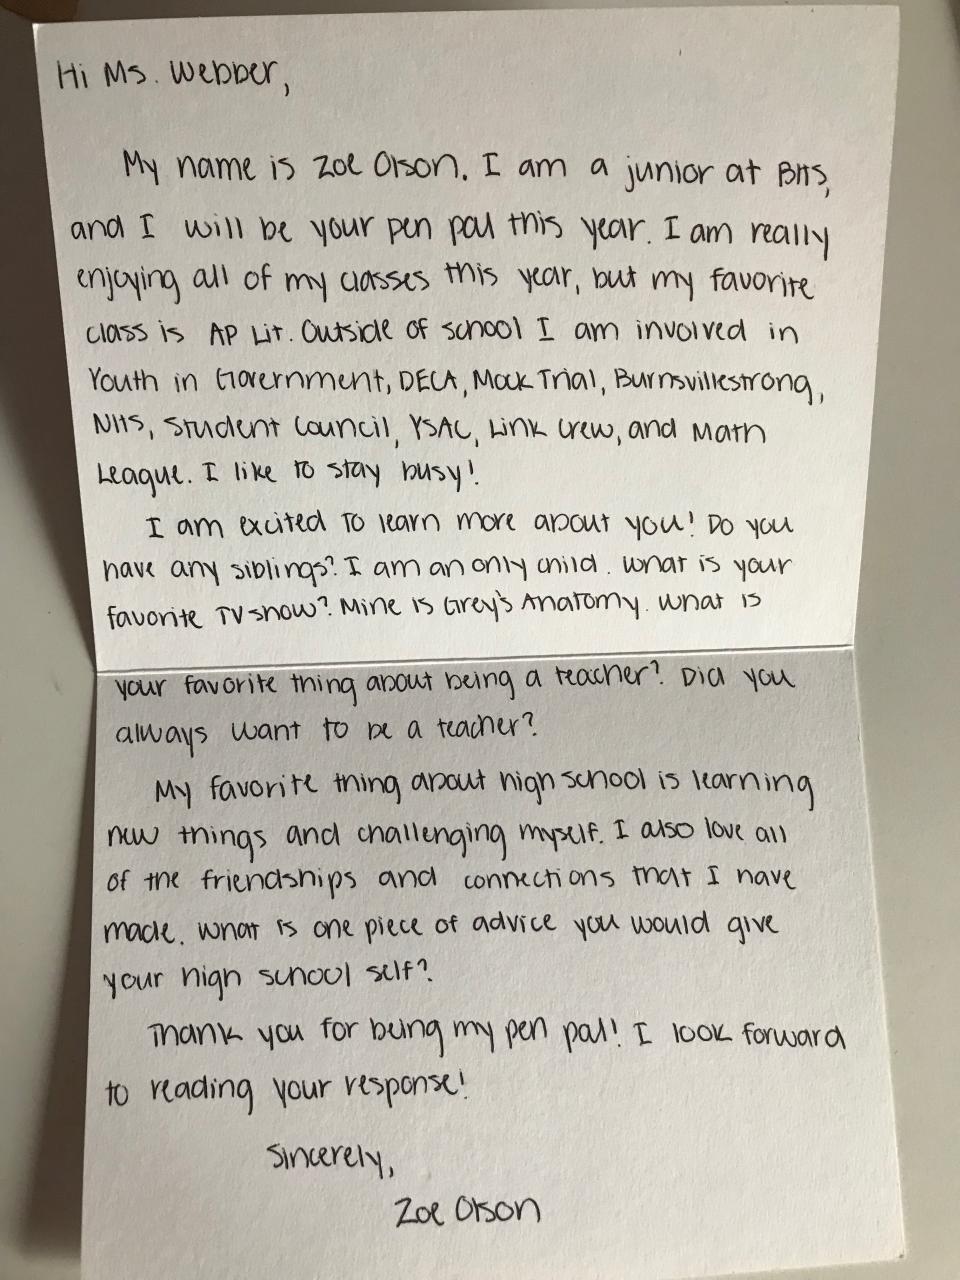 Hi Ms. Webber,
My name is Zoe Olson. I am a junior at BHS,
and I will be your pen pal this year. I am really
enjoying all of my classes this year, but my favorite
class is AP Lit. Outside of school I am involved in
Youth in Government, DECA, Mock Trial, Burnsvillestrong,
NHS, Student Council, YSAC, Link Crew, and Math
League. I like to stay busy!
I am excited to learn more about you! Do you
have any siblings? I am an only child. What is your
favorite TV show? Mine is Grey's Anatomy. What is
your favorite thing about being a teacher? Did you
always want to be a teacher?
My favorite thing about high school is learning
new things and challenging myself. I also love all
of the friendships and connections that I have
made. What is one piece of advice you would give
your high school self?
Thank you for being my pen pal! I look forward
to reading your response!
Sincerely,
Zoe Olson